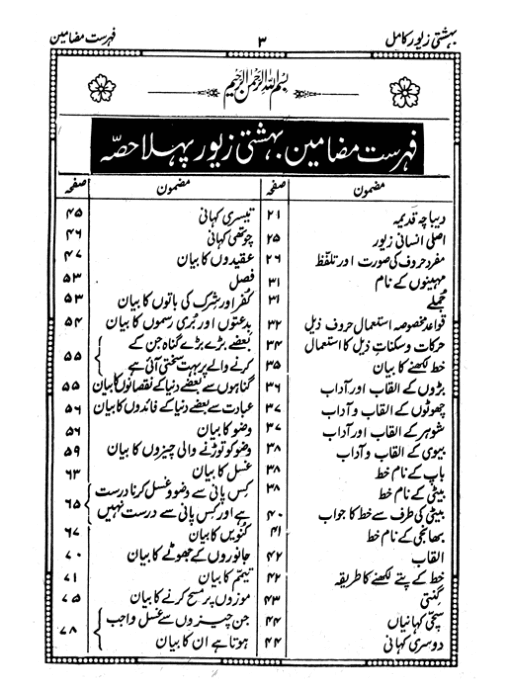 بہشتی زیور کامل ۳ فہرست مضامین
بسم اللہ الرحمٰن الرحیم
فہرست مضامین بہشتی زیور پہلا حصّہ
مضمون صفحہ
دیباچہ قدیمہ ۲۱
اصلی انسانی زیور ۲۵
مفرد حروف کی صورت اور تلفّظ ۲۶
مہینوں کے نام ۳۱
جُملے ۳۱
قواعد مخصوصہ استعمال حروف ذیل ۳۲
حرکات و سکناتِ ذیل کا استعمال ۳۴
خط لکھنے کا بیان ۳۵
بڑوں کے القاب اور آداب ۳۶
چھوٹوں کے القاب و آداب ۳۷
شوہر کے القاب اور آداب ۳۷
بیوی کے القاب و آداب ۳۸
باپ کے نام خط ۳۸
بیٹی کے نام خط ۳۸
بیٹی کی طرف سے خط کا جواب ۴۰
بھانجی کے نام خط ۴۱
القاب ۴۲
خط کے پتے لکھنے کا طریقہ ۴۲
گنتی ۴۳
سچّی کہانیاں ۴۴
دوسری کہانی ۴۴
مضمون صفحہ
تیسری کہانی ۴۵
چوتھی کہانی ۴۶
عقیدوں کا بیان ۴۷
فصل ۵۳
کُفر اور شرک کی باتوں کا بیان ۵۳
بدعتوں اور بُری رسموں کا بیان ۵۴
بعضے بڑے بڑے گناہ جن کے
کرنے والے پر بہت سختی آئی ہے ۵۵
گناہوں سے بعضے دنیا کے نقصانوں کا بیان ۵۵
عبادت سے بعضے دنیا کے فائدوں کا بیان ۵۶
وضو کا بیان ۵۶
وضو کو توڑنے والی چیزوں کا بیان ۵۹
غسل کا بیان ۶۳
کِس پانی سے وضو و غسل کرنا درست
ہے اور کِس پانی سے درست نہیں ۶۵
کنُویں کا بیان ۶۷
جانوروں کے جھوٹے کا بیان ۷۰
تیمّم کا بیان ۷۱
موزوں پر مسح کرنے کا بیان ۷۵
جن چیزوں سے غسل واجب
ہوتا ہے ان کا بیان ۷۸